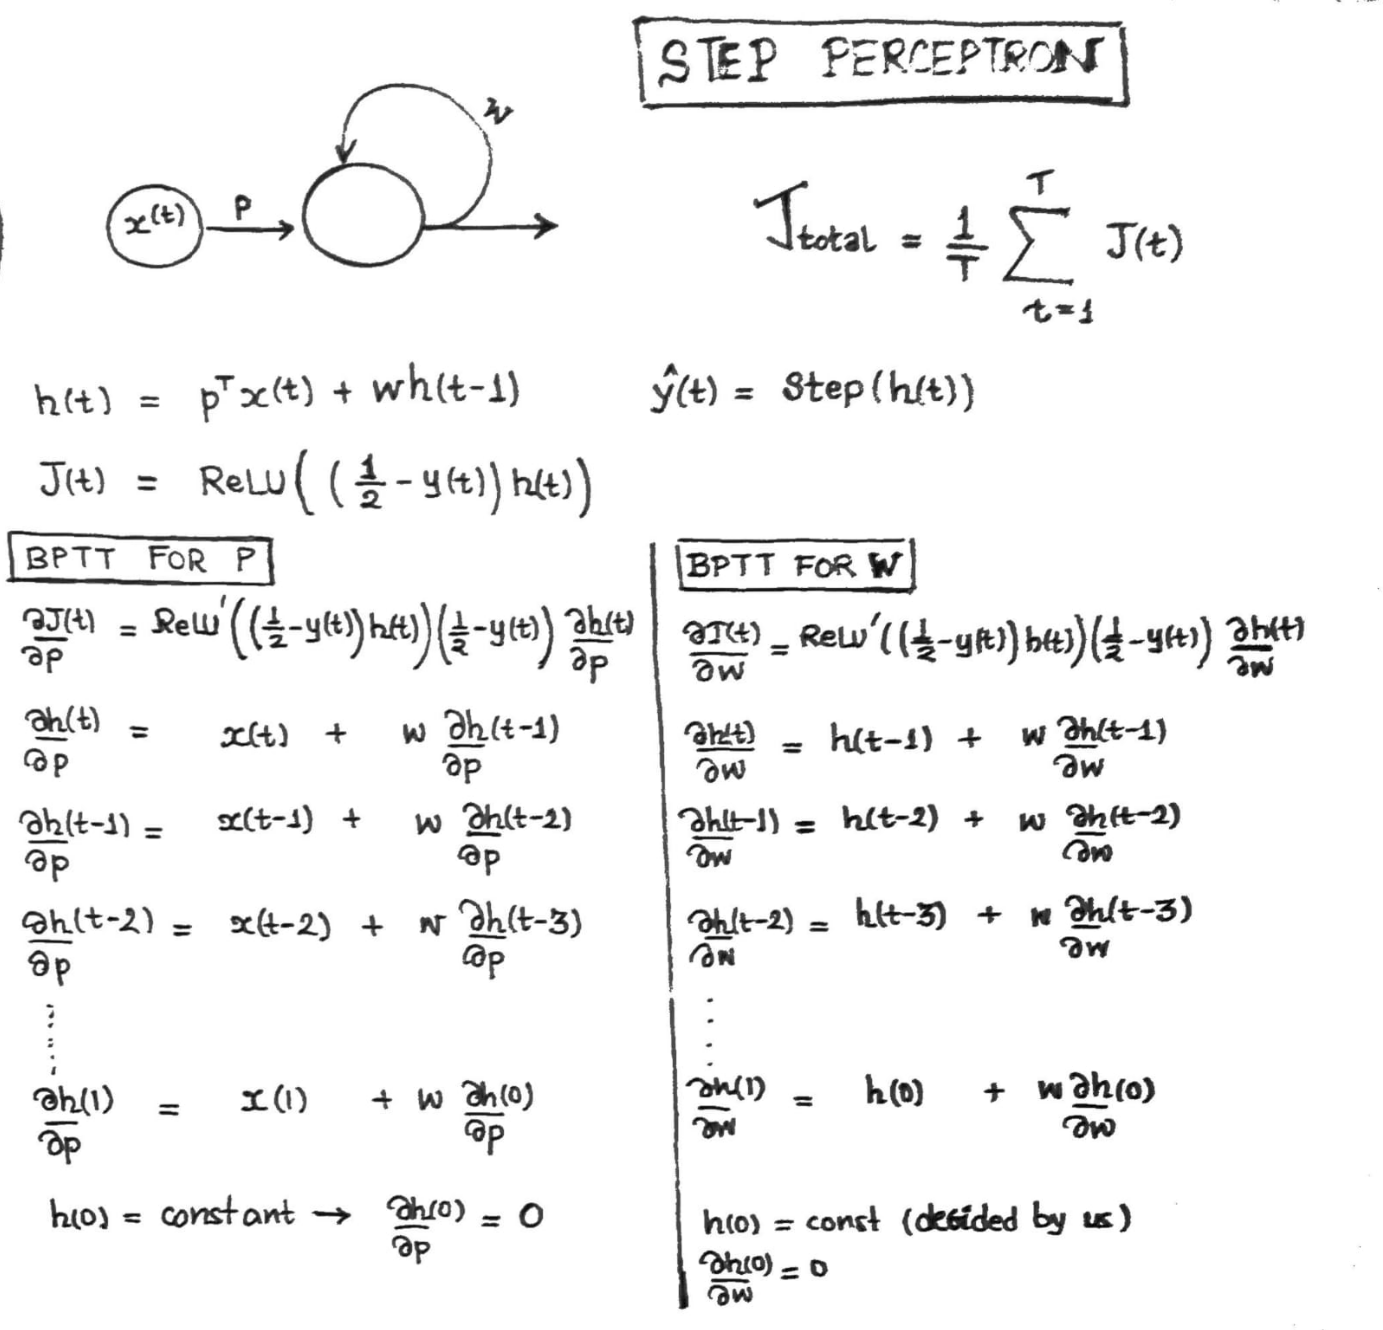 STEP PERCEPTRON
w
x(t) P
J total = 1/T ∑ T t=1 J(t)
h(t) = pᵀx(t) + wh(t-1)
ŷ(t) = Step(h(t))
J(t) = ReLU( (1/2 - y(t)) h(t))
BPTT FOR P
∂J(t)/∂p = ReLU'((1/2-y(t))h(t))(1/2-y(t)) ∂h(t)/∂p
∂h(t)/∂p = x(t) + w ∂h(t-1)/∂p
∂h(t-1)/∂p = x(t-1) + w ∂h(t-2)/∂p
∂h(t-2)/∂p = x(t-2) + w ∂h(t-3)/∂p
......
∂h(1)/∂p = x(1) + w ∂h(0)/∂p
h(0) = constant → ∂h(0)/∂p = 0
BPTT FOR W
∂J(t)/∂w = ReLU'((1/2-y(t))h(t))(1/2-y(t)) ∂h(t)/∂w
∂h(t)/∂w = h(t-1) + w ∂h(t-1)/∂w
∂h(t-1)/∂w = h(t-2) + w ∂h(t-2)/∂w
∂h(t-2)/∂w = h(t-3) + w ∂h(t-3)/∂w
.....
∂h(1)/∂w = h(0) + w ∂h(0)/∂w
h(0) = const (desided by us)
∂h(0)/∂w = 0